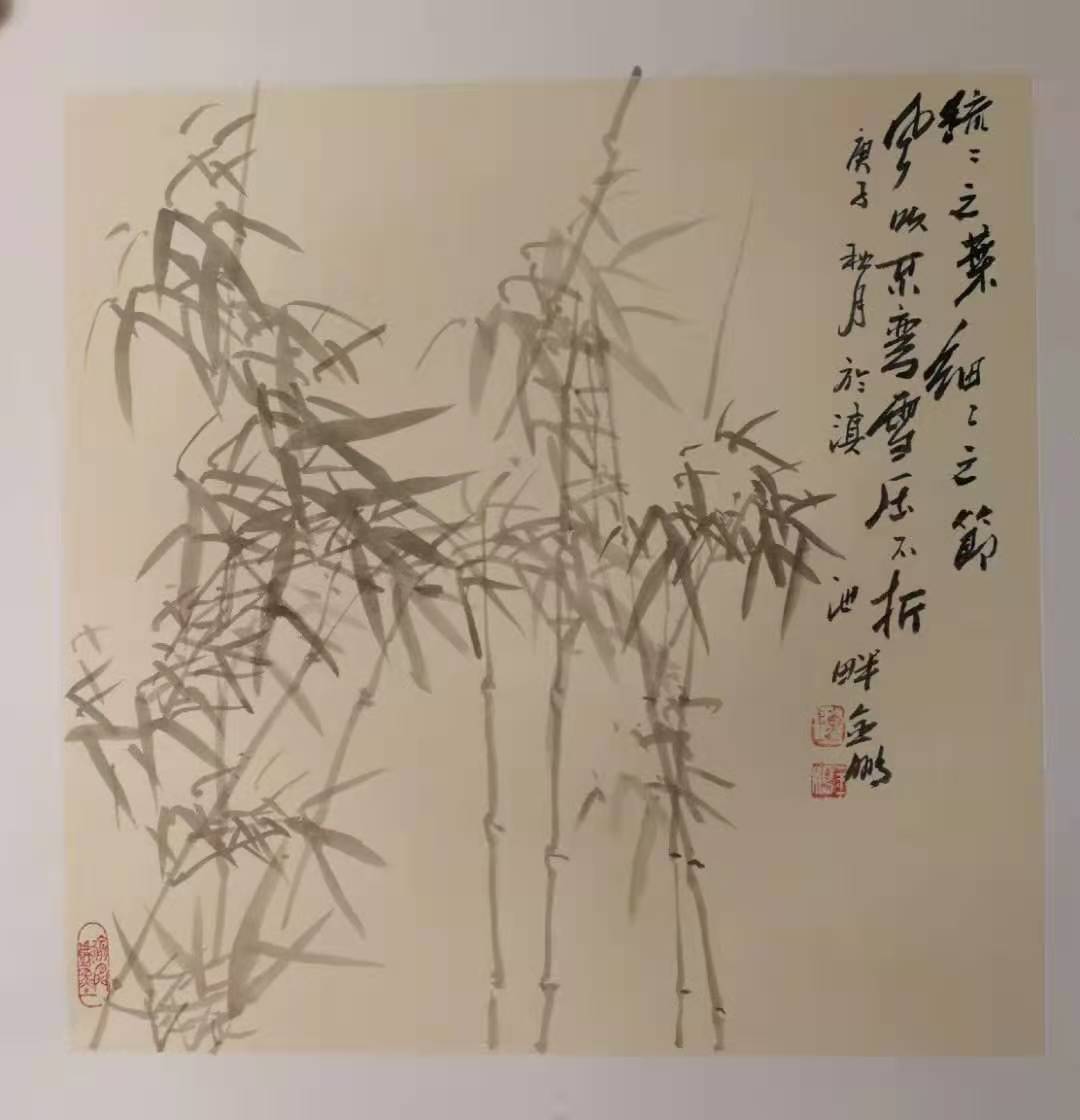 疏〻之葉細〻之節
風吹不弯雪压不折
庚子秋月於滇池畔金鹏